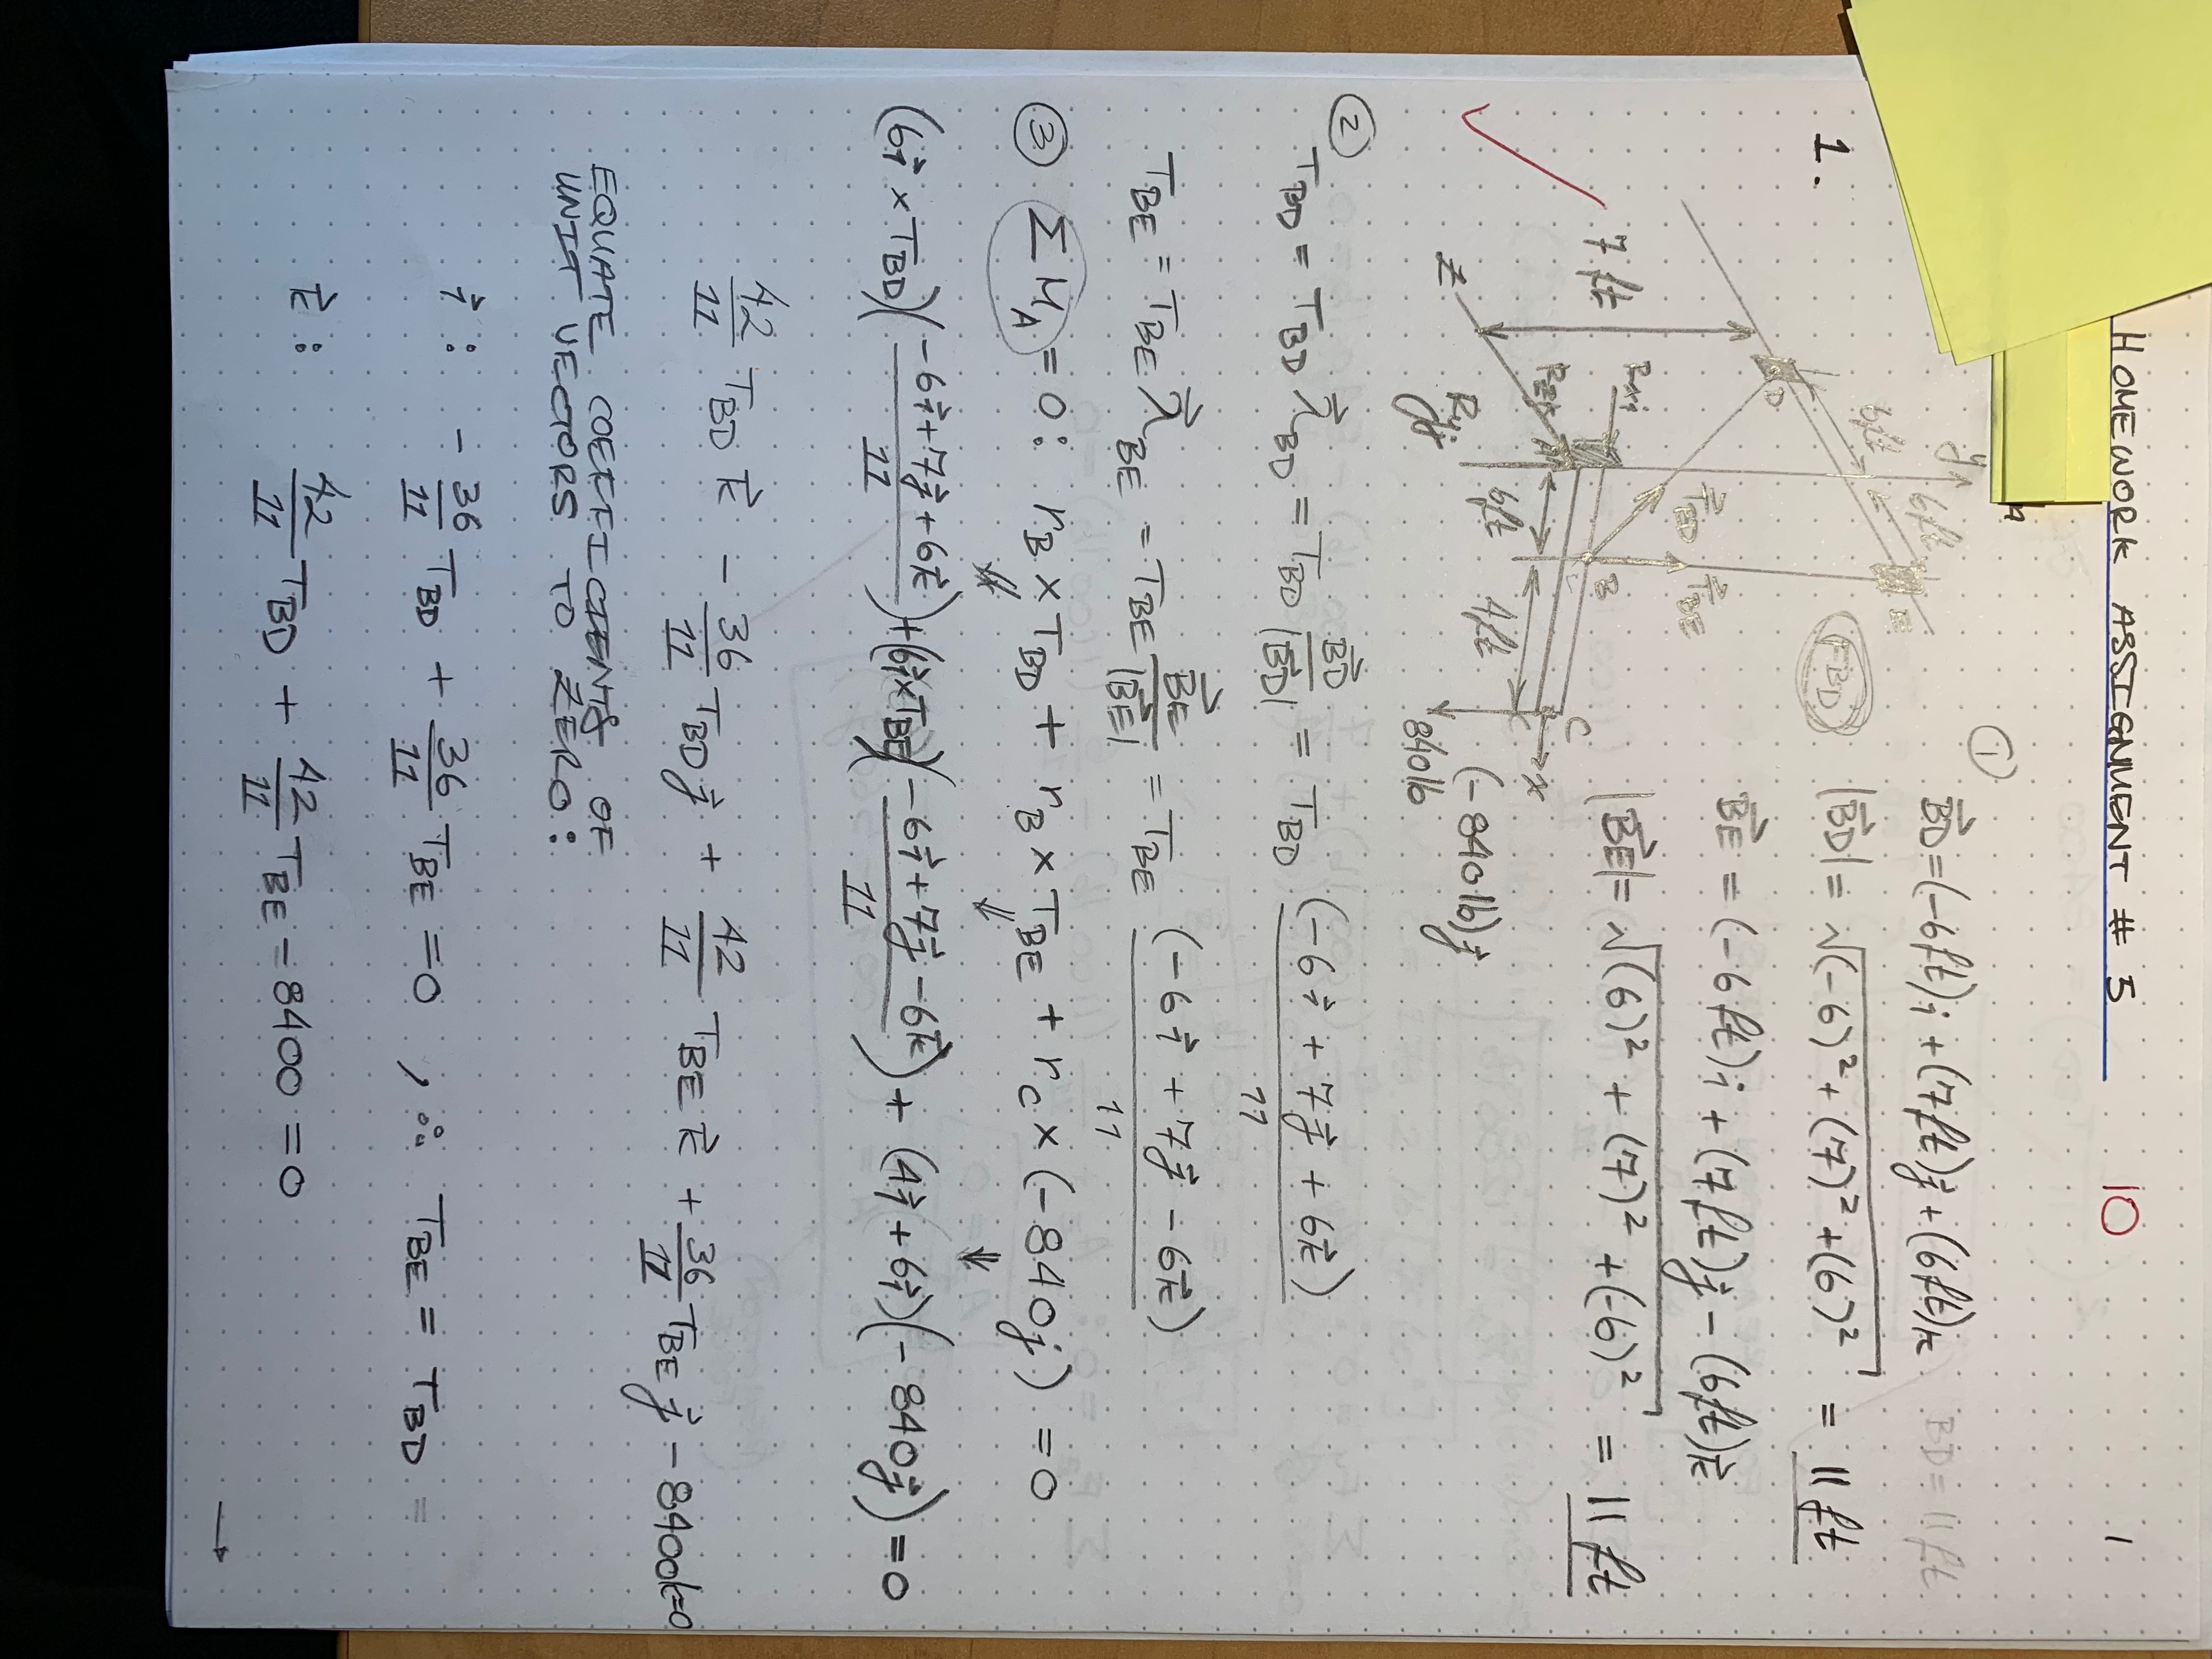 HOMEWORK ASSIGNMENT # 5 10 1
1.
①
B⃗D = (-6ft)i + (7ft)ĵ + (6ft)k BD = 11 ft
|B⃗D| = √(-6)² + (7)² + (6)² = 11 ft
B⃗E = (-6ft)i + (7ft)ĵ - (6ft)k⃗
|B⃗E| = √(6)² + (7)² + (-6)² = 11 ft
FBD
y
6ft
6ft
D
E
7 ft
T⃗BD
T⃗BE
B
Z
6ft
4ft
C
x
(-840 lb)ĵ
840 lb
② TBD = TBD λ⃗BD = TBD B⃗D/|B⃗D| = TBD (-6i⃗ + 7ĵ + 6k⃗)/11
TBE = TBE λ⃗BE = TBE B⃗E/|B⃗E| = TBE (-6i⃗ + 7ĵ - 6k⃗)/11
③ ΣMA = 0: rB × TBD + rB × TBE + rC × (-840j) = 0
(6i⃗ × TBD)(-6i⃗ + 7ĵ + 6k⃗/11) + (6i⃗ × TBE)(-6i⃗ + 7ĵ - 6k⃗/11) + (4i⃗ + 6i⃗)(-840ĵ) = 0
42/11 TBD k⃗ - 36/11 TBD ĵ + 42/11 TBE k⃗ + 36/11 TBE ĵ - 8400k = 0
EQUATE COEFFICIENTS OF
UNIT VECTORS TO ZERO:
i⃗: - 36/11 TBD + 36/11 TBE = 0 , ∴ TBE = TBD =
k⃗: 42/11 TBD + 42/11 TBE - 8400 = 0
→